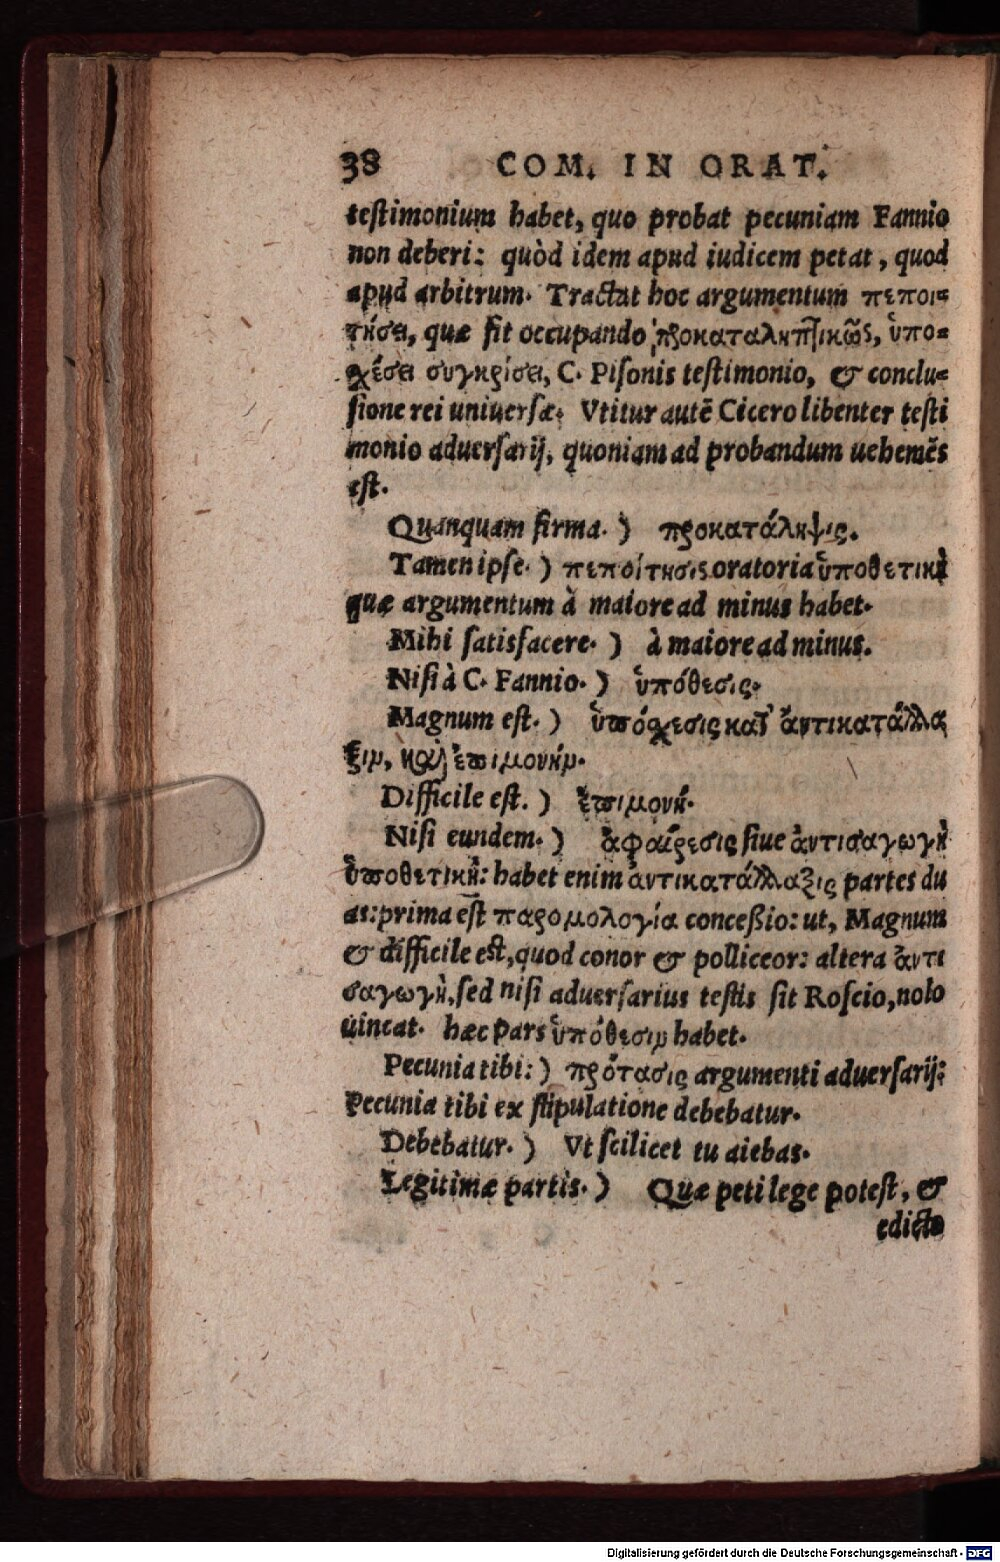 38 COM. IN ORAT.
testimonium habet, quo probat pecuniam Fannio
non deberi: quòd idem apud iudicem petat, quod
apud arbitrum. Tractat hoc argumentum πεποι-
τήσει, quæ fit occupando προκαταληπτικῶς, ὑπο-
χέσει συγκρίσει, C. Pisonis testimonio, & conclu-
sione rei uniuersæ. Vtitur autē Cicero libenter testi
monio aduersarij, quoniam ad probandum uehemēs
est.
Quanquam firma.) προκατάληψις.
Tamen ipse.) πεποίτησις oratoria ὑποθετικὴ
quæ argumentum à maiore ad minus habet.
Mihi satisfacere.) à maiore ad minus.
Nisi à C. Fannio.) ὑπόθεσις.
Magnum est.) ὑπόχεσις κατ' ἀντικατάλλα
ξιν, καὶ ἐπιμονήν.
Difficile est.) ἐπιμονή.
Nisi eundem.) ἀφαίρεσις siue ἀντισαγωγὴ
ὑποθετική: habet enim ἀντικατάλλαξις partes du
as: prima est παρομολογία conceßio: ut, Magnum
& difficile est, quod conor & polliceor: altera ἀντι
σαγωγὴ, sed nisi aduersarius testis sit Roscio, nolo
uincat. hæc pars ὑπόθεσιν habet.
Pecunia tibi:) πρότασις argumenti aduersarij:
Pecunia tibi ex stipulatione debebatur.
Debebatur.) Vt scilicet tu aiebas.
Legitimæ partis.) Quæ peti lege potest, &
edicto
Digitalisierung gefördert durch die Deutsche Forschungsgemeinschaft - DFG